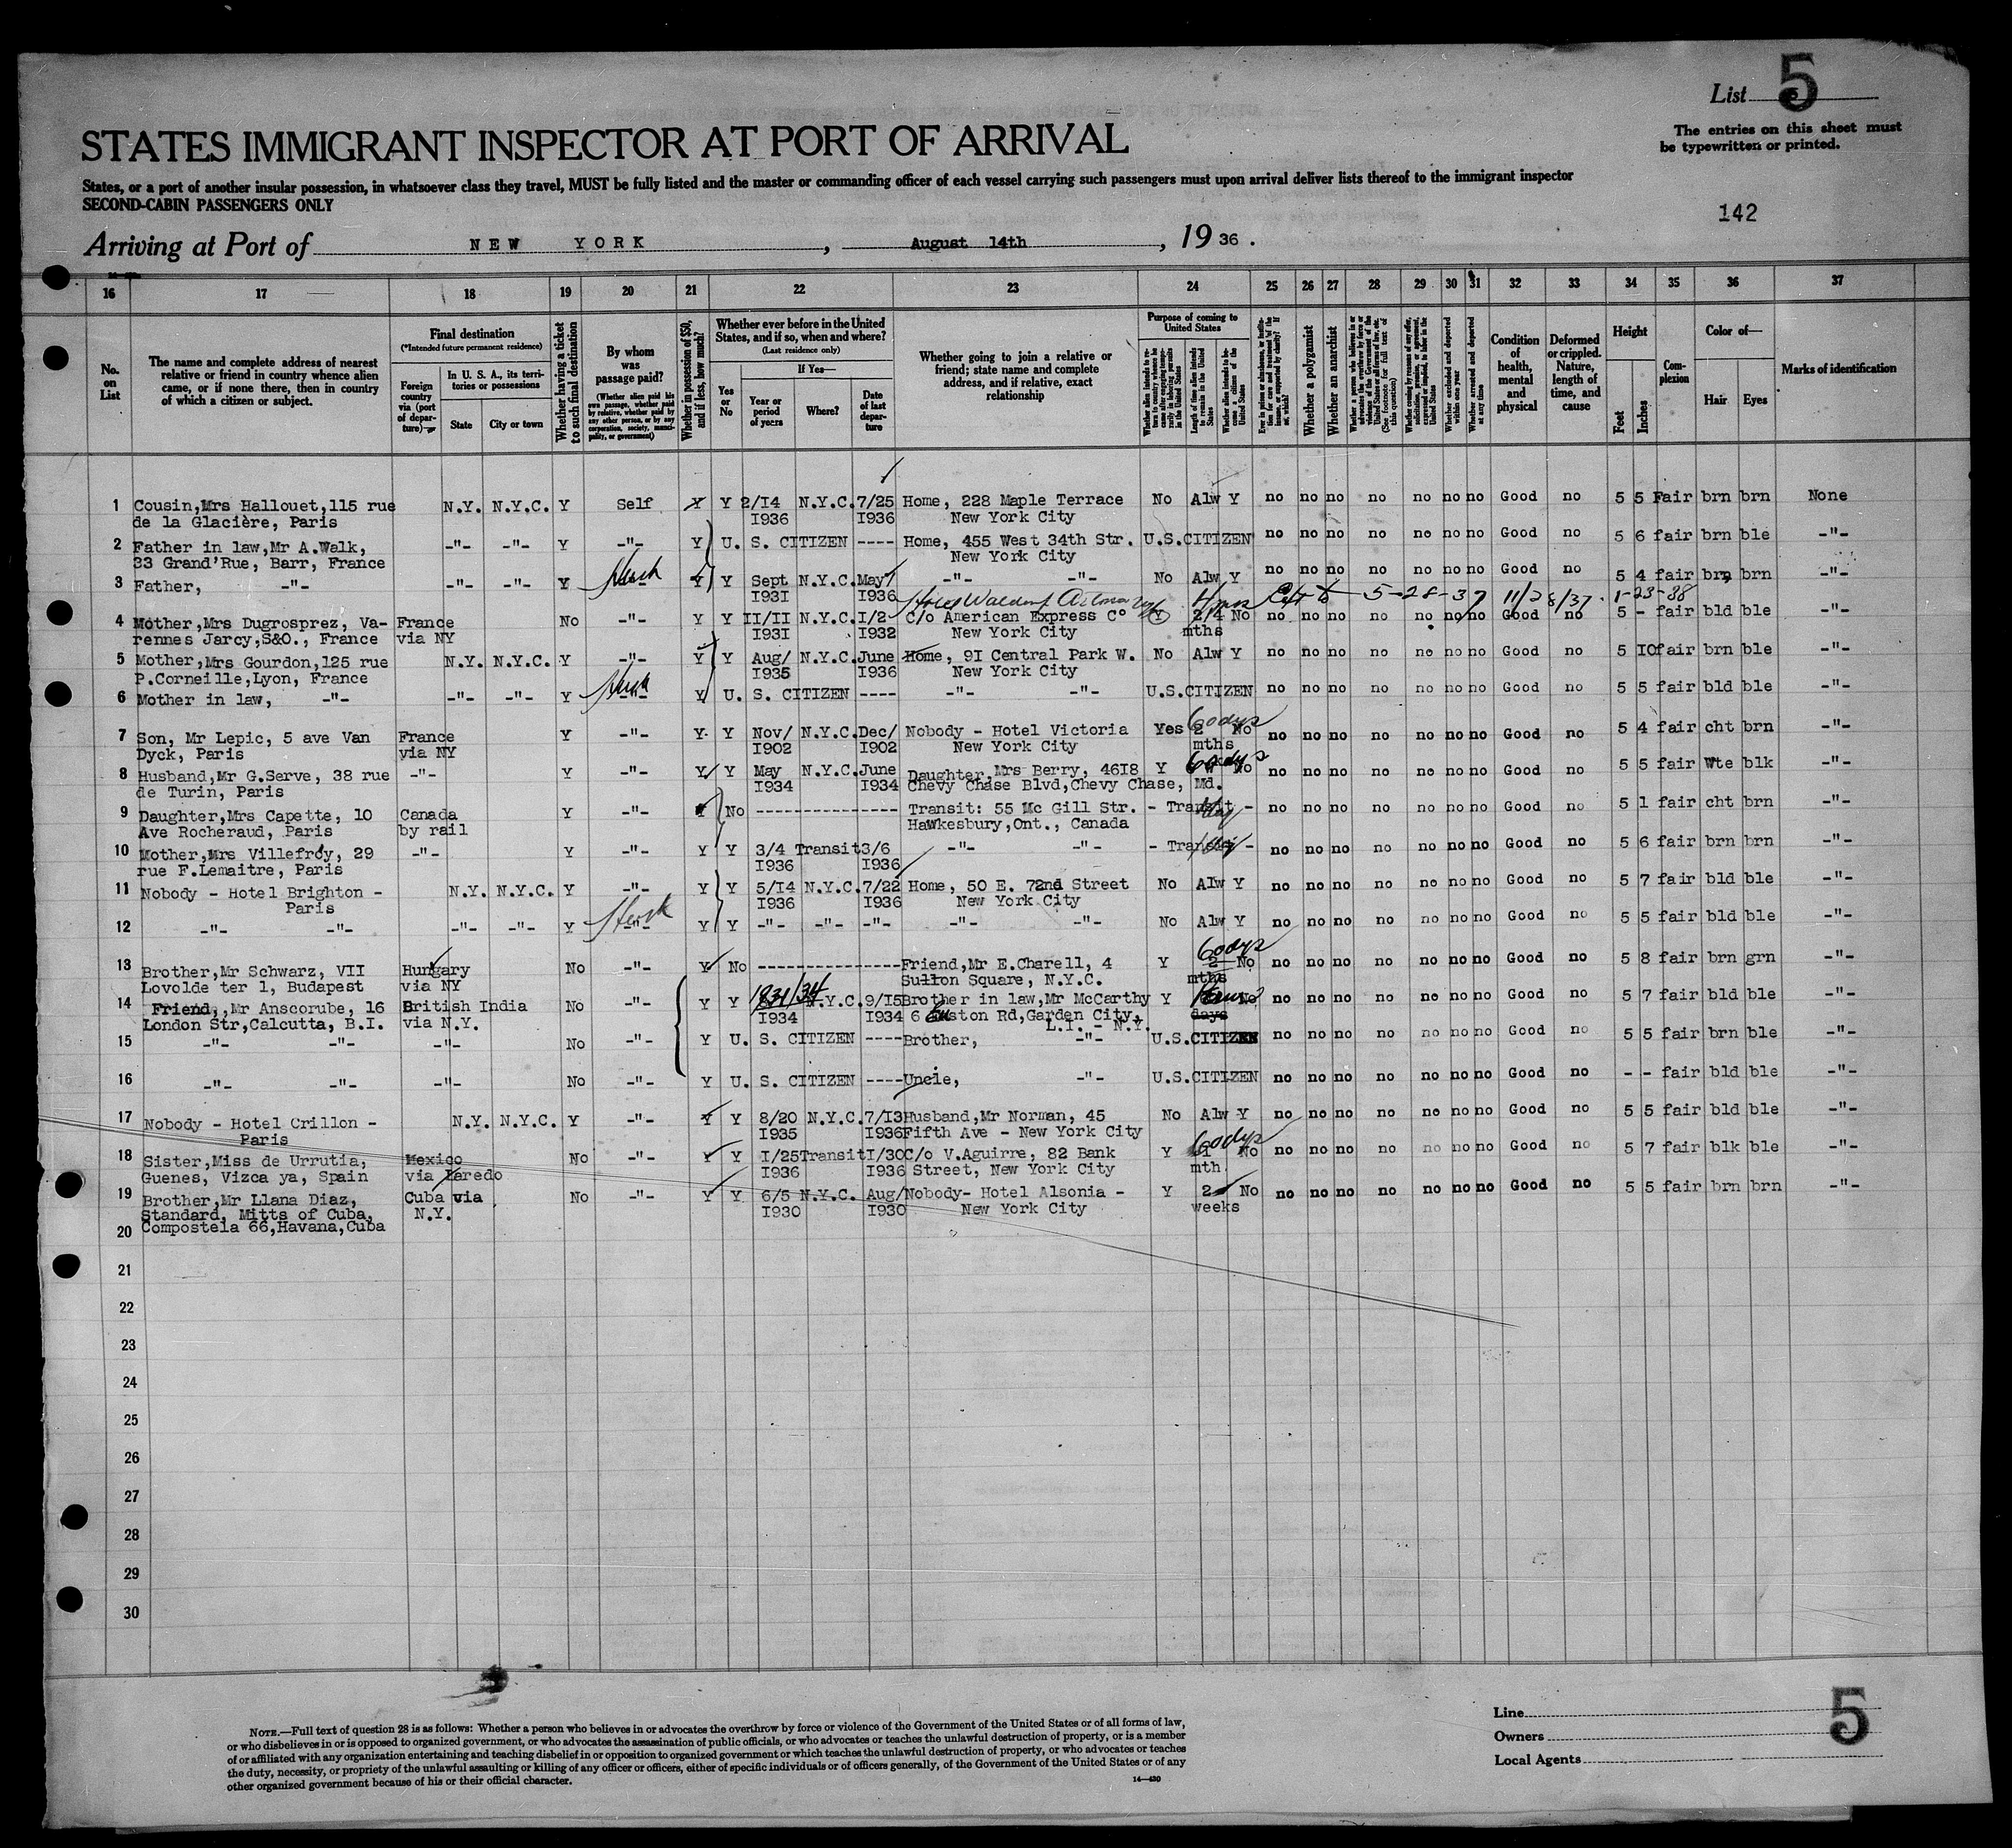 List 5
The entries on this sheet must
be typewritten or printed.
STATES IMMIGRANT INSPECTOR AT PORT OF ARRIVAL
States, or a port of another insular possession, in whatsoever class they travel, MUST be fully listed and the master or commanding officer of each vessel carrying such passengers must upon arrival deliver lists thereof to the immigrant inspector
SECOND-CABIN PASSENGERS ONLY
142
Arriving at Port of NEW YORK, August 14th, 1936.
16 17 18 19 20 21 22 23 24 25 26 27 28 29 30 31 32 33 34 35 36 37
No. on List
The name and complete address of nearest relative or friend in country whence alien came, or if none there, then in country of which a citizen or subject.
Final destination
(*Intended future permanent residence)
Foreign country via (port of departure)
In U. S. A., its territories or possessions
State
City or town
Whether having a ticket to such final destination
By whom was passage paid?
(Whether alien paid his own passage, whether paid by relative, whether paid by any other person, or by any corporation, society, municipality, or government)
Whether in possession of $50, and if less, how much?
Whether ever before in the United States, and if so, when and where?
(Last residence only)
Yes or No
If Yes—
Year or period of years
Where?
Date of last departure
Whether going to join a relative or friend; state name and complete address, and if relative, exact relationship
Purpose of coming to United States
Length of time alien intends to remain in the United States
Whether alien intends to become a citizen of the United States
Whether a polygamist
Whether an anarchist
Whether excluded and deported within one year
Whether arrested and deported at any time
Condition of health, mental and physical
Deformed or crippled. Nature, length of time, and cause
Height
Feet
Inches
Complexion
Color of—
Hair
Eyes
Marks of identification
1 Cousin,Mrs Hallouet,115 rue N.Y. N.Y.C. Y Self Y Y 2/14 N.Y.C. 7/25 Home, 228 Maple Terrace No Alw Y no no no no no no no Good no 5 5 Fair brn brn None
de la Glacière, Paris I936 I936 New York City
2 Father in law,Mr A.Walk, -"- -"- Y -"- Y U. S. CITIZEN ---- Home, 455 West 34th Str. U.S.CITIZEN no no no no no no no Good no 5 6 fair brn ble -"-
33 Grand'Rue, Barr, France New York City
3 Father, -"- -"- -"- Y -"- Y Y Sept N.Y.C. May -"- -"- No Alw Y no no no no no no no Good no 5 4 fair brn brn -"-
I931 I936
Hotel Waldorf Astoria 4 mos Ext to 5-28-37 11/28/37. 1-23-38
4 Mother,Mrs Dugrosprez, Va- France No -"- Y Y II/II N.Y.C. I/2 C/o American Express C° Y 2/4 No no no no no no no no Good no 5 - fair bld ble -"-
rennes Jarcy,S&O., France via NY I931 I932 New York City mths
5 Mother,Mrs Gourdon,125 rue N.Y. N.Y.C. Y -"- Y Y Aug/ N.Y.C. June Home, 9I Central Park W. No Alw Y no no no no no no no Good no 5 IO fair brn ble -"-
P.Corneille,Lyon, France I935 I936 New York City
6 Mother in law, -"- -"- -"- Y -"- Y U. S. CITIZEN ---- -"- -"- U.S.CITIZEN no no no no no no no Good no 5 5 fair bld ble -"-
60 dys
7 Son, Mr Lepic, 5 ave Van France Y -"- Y Y Nov/ N.Y.C. Dec/ Nobody - Hotel Victoria Yes 2 No no no no no no no no Good no 5 4 fair cht brn -"-
Dyck, Paris via NY I902 I902 New York City mths
60 dys
8 Husband,Mr G.Serve, 38 rue -"- Y -"- Y Y May N.Y.C. June Daughter,Mrs Berry, 46I8 Y No no no no no no no no Good no 5 5 fair Wte blk -"-
de Turin, Paris I934 I934 Chevy Chase Blvd,Chevy Chase, Md.
9 Daughter,Mrs Capette, 10 Canada Y -"- Y No ---------------- Transit: 55 Mc Gill Str. - Transit - no no no no no no no Good no 5 1 fair cht brn -"-
Ave Rocheraud, Paris by rail Hawkesbury,Ont., Canada
10 Mother,Mrs Villefroy, 29 -"- Y -"- Y Y 3/4 Transit 3/6 -"- -"- - Transit - no no no no no no no Good no 5 6 fair brn brn -"-
rue F.Lemaitre, Paris I936 I936
11 Nobody - Hotel Brighton - N.Y. N.Y.C. Y -"- Y Y 5/14 N.Y.C. 7/22 Home, 50 E. 72nd Street No Alw Y no no no no no no no Good no 5 7 fair bld ble -"-
Paris I936 I936 New York City
12 -"- -"- -"- -"- Y -"- Y Y -"- -"- -"- -"- -"- No Alw Y no no no no no no no Good no 5 5 fair bld ble -"-
60 dys
13 Brother,Mr Schwarz, VII Hungary No -"- Y No ---------------- Friend,Mr E.Charell, 4 Y 2 No no no no no no no no Good no 5 8 fair brn grn -"-
Lovolde ter 1, Budapest via NY Sutton Square, N.Y.C. mths
14 Friend,,Mr Anscorube, 16 British India No -"- Y Y 1931/34 N.Y.C. 9/15 Brother in law,Mr McCarthy Y No no no no no no no no Good no 5 7 fair bld ble -"-
London Str,Calcutta, B.I. via N.Y. I934 I934 6 Euston Rd,Garden City, days
L.I. - N.Y.
15 -"- -"- -"- No -"- Y U. S. CITIZEN ---- Brother, -"- U.S.CITIZEN no no no no no no no Good no 5 5 fair brn ble -"-
16 -"- -"- -"- No -"- Y U. S. CITIZEN ---- Uncle, -"- U.S.CITIZEN no no no no no no no Good no - - fair bld ble -"-
17 Nobody - Hotel Crillon - N.Y. N.Y.C. Y -"- Y Y 8/20 N.Y.C. 7/13 Husband,Mr Norman, 45 No Alw Y no no no no no no no Good no 5 5 fair bld ble -"-
Paris I935 I936 Fifth Ave - New York City
60 dys
18 Sister,Miss de Urrutia, Mexico No -"- Y Y I/25 Transit I/30 C/o V.Aguirre, 82 Bank Y 1 No no no no no no no no Good no 5 7 fair blk ble -"-
Guenes, Vizca ya, Spain via Laredo I936 I936 Street, New York City mth
19 Brother,Mr Llana Diaz, Cuba via No -"- Y Y 6/5 N.Y.C. Aug/ Nobody- Hotel Alsonia - Y 2 No no no no no no no no Good no 5 5 fair brn brn -"-
Standard, Mitts of Cuba, N.Y. I930 I930 New York City weeks
Compostela 66,Havana,Cuba
20
21
22
23
24
25
26
27
28
29
30
NOTE.—Full text of question 28 is as follows: Whether a person who believes in or advocates the overthrow by force or violence of the Government of the United States or of all forms of law,
or who disbelieves in or is opposed to organized government, or who advocates the assassination of public officials, or who advocates or teaches the unlawful destruction of property, or is a member
of or affiliated with any organization entertaining and teaching disbelief in or opposition to organized government or which teaches the unlawful destruction of property, or who advocates or teaches
the duty, necessity, or propriety of the unlawful assaulting or killing of any officer or officers, either of specific individuals or of officers generally, of the Government of the United States or of any
other organized government because of his or their official character.
14—430
Line
Owners
Local Agents
5